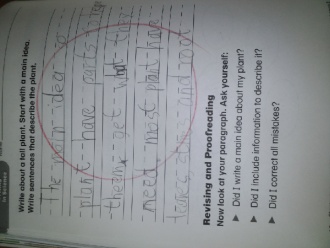 Write about a tall plant. Start with a main idea.
Write sentences that describe the plant.
The main idea is
plant have parts
them get what they
need most plant have
and root
Revising and Proofreading
Now look at your paragraph. Ask yourself:
▶ Did I write a main idea about my plant?
▶ Did I include information to describe it?
▶ Did I correct all mistakes?